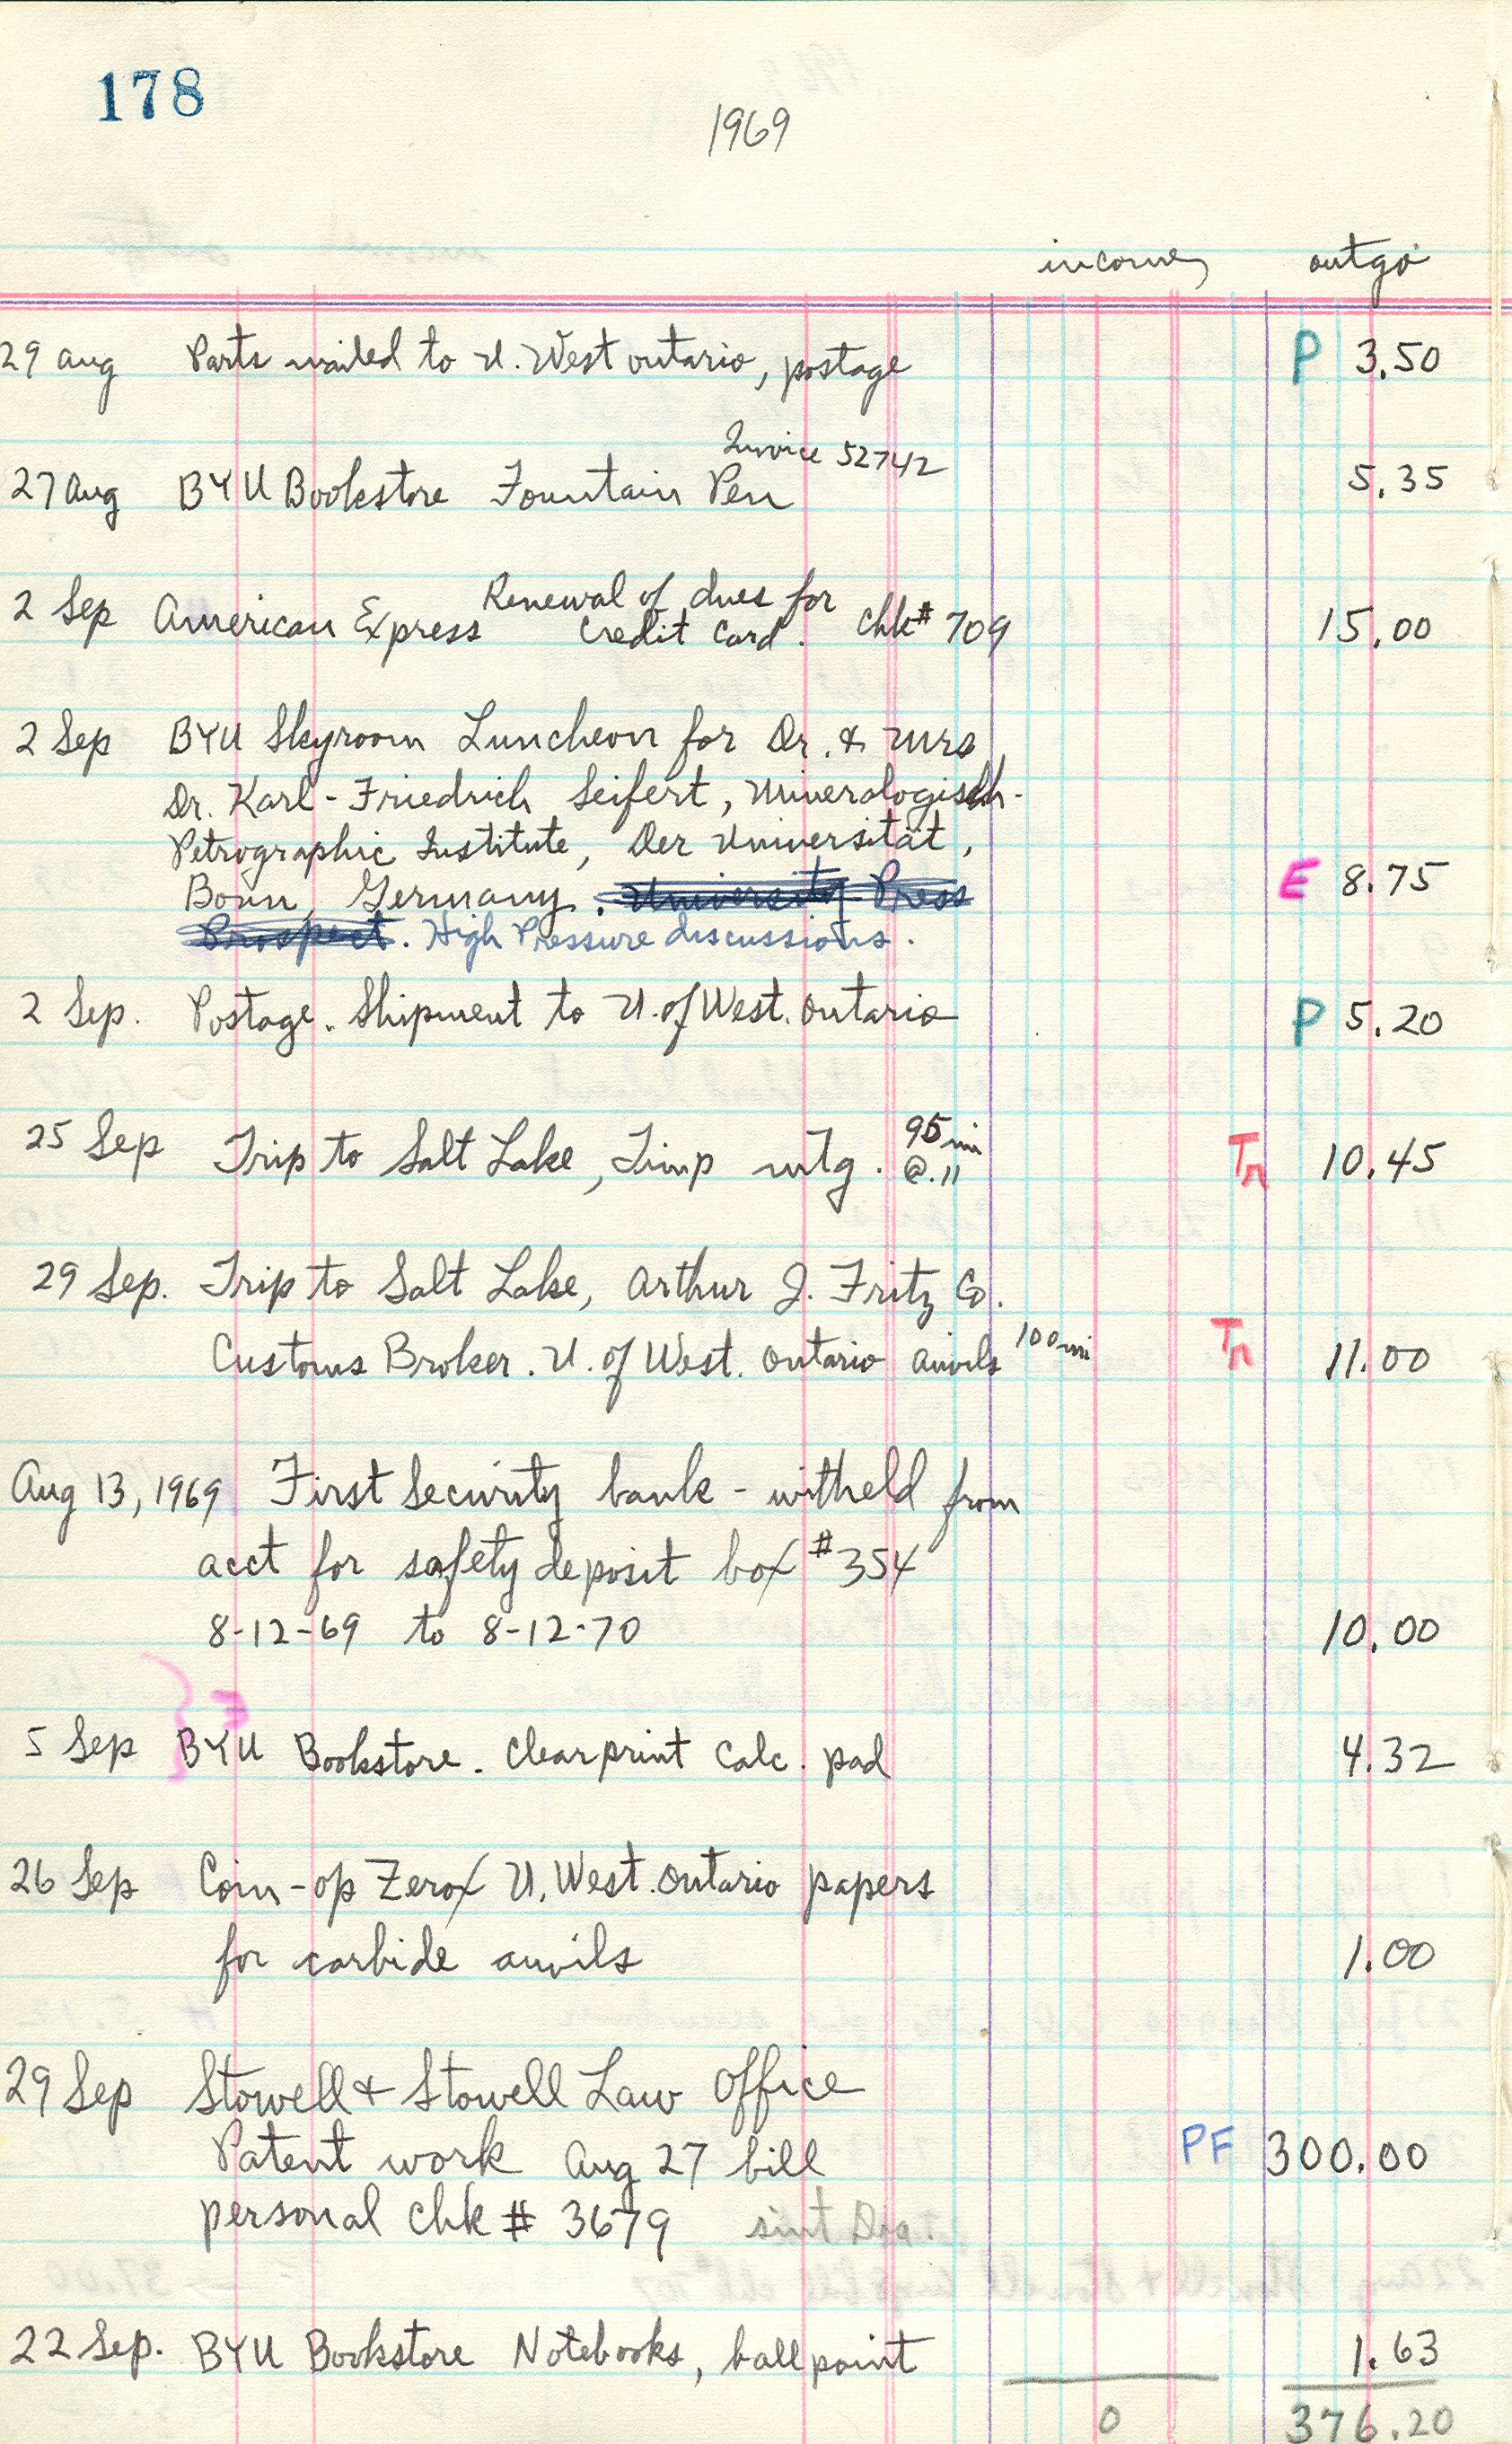 178
1969
income outgo
29 Aug Parts mailed to U. West Ontario, postage P 3.50
Invoice 52742
27 Aug BYU Bookstore Fountain Pen 5.35
Renewal of dues for
2 Sep American Express Credit Card. Chk# 709 15.00
2 Sep BYU Skyroom Luncheon for Dr. & Mrs
Dr. Karl-Friedrich Seifert, Mineralogisch-
Petrographic Institute, Der Universität,
Bonn, Germany. University Press E 8.75
Prospect. High Pressure discussions.
2 Sep. Postage. Shipment to U. of West. Ontario P 5.20
95 mi
25 Sep Trip to Salt Lake, Timp mtg. @.11 Tn 10.45
29 Sep. Trip to Salt Lake, Arthur J. Fritz Co.
Customs Broker. U. of West. Ontario anvils 100 mi Tn 11.00
Aug 13, 1969 First Security bank - witheld from
acct for safety deposit box #354
8-12-69 to 8-12-70 10.00
E
5 Sep BYU Bookstore. Clearprint Calc. pad 4.32
26 Sep Coin-op Zerox U. West. Ontario papers
for carbide anvils 1.00
29 Sep Stowell & Stowell Law Office
Patent work Aug 27 bill PF 300.00
personal chk # 3679
22 Sep. BYU Bookstore Notebooks, ballpoint 1.63
0 376.20